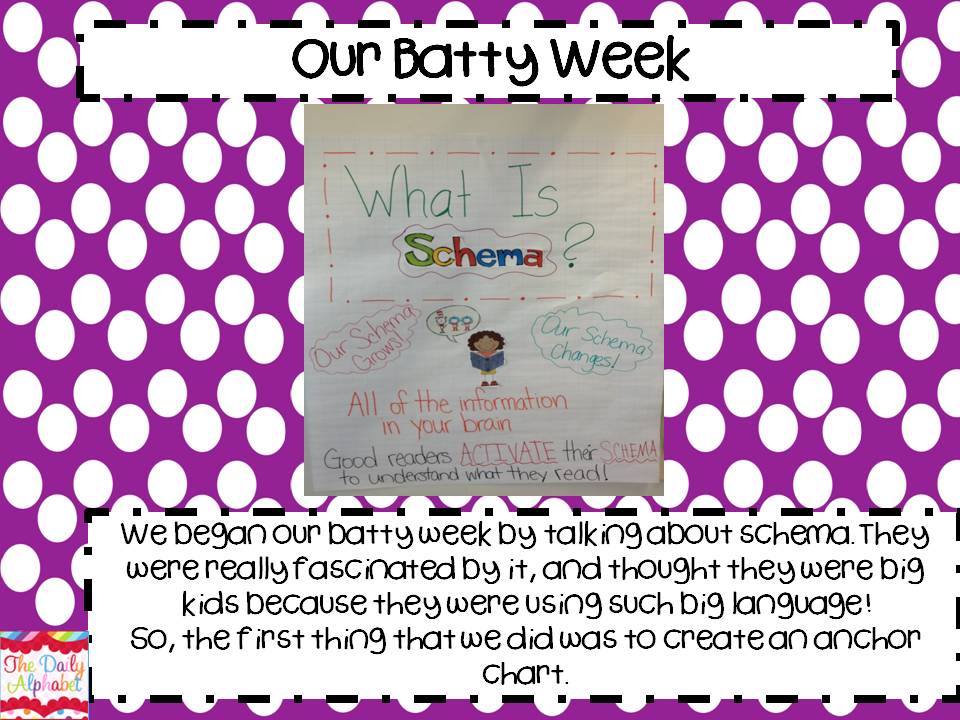 Our Batty Week
What Is
Schema?
Our Schema
Grows!
Our Schema
Changes!
All of the information
in your brain
Good readers ACTIVATE their SCHEMA
to understand what they read!
We began our batty week by talking about schema. They
were really fascinated by it, and thought they were big
kids because they were using such big language!
So, the first thing that we did was to create an anchor
chart.
The Daily
Alphabet